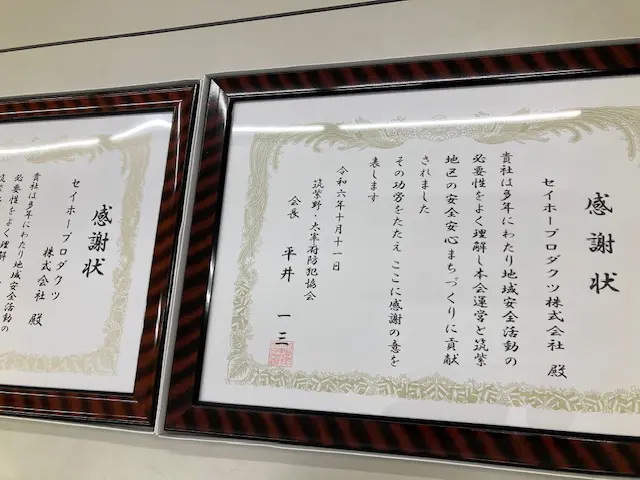 感謝状
セイホープロダクツ株式会社 殿
貴社は多年にわたり地域安全活動の
必要性をよく理解し本会運営と筑紫
地区の安全安心まちづくりに貢献
されました
その功労をたたえ ここに感謝の意を
表します
令和六年十月十一日
筑紫野・太宰府防犯協会
会長 平井 一三
感謝状
セイホープロダクツ
株式会社 殿
貴社は多年にわたり地域安全活動の
必要性をよく理解